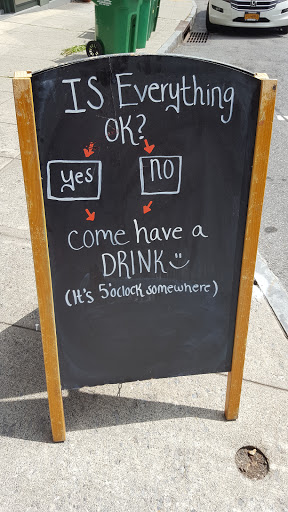 IS Everything
OK?
yes no
come have a
DRINK
(It's 5 o'clock somewhere)